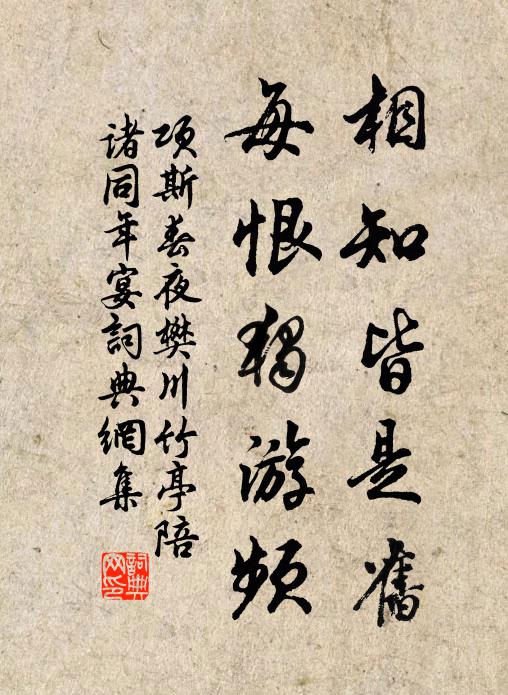 相知皆是舊
每恨獨游頻
項斯春夜樊川竹亭陪
諸同年宴詞典網集
詞典
网印